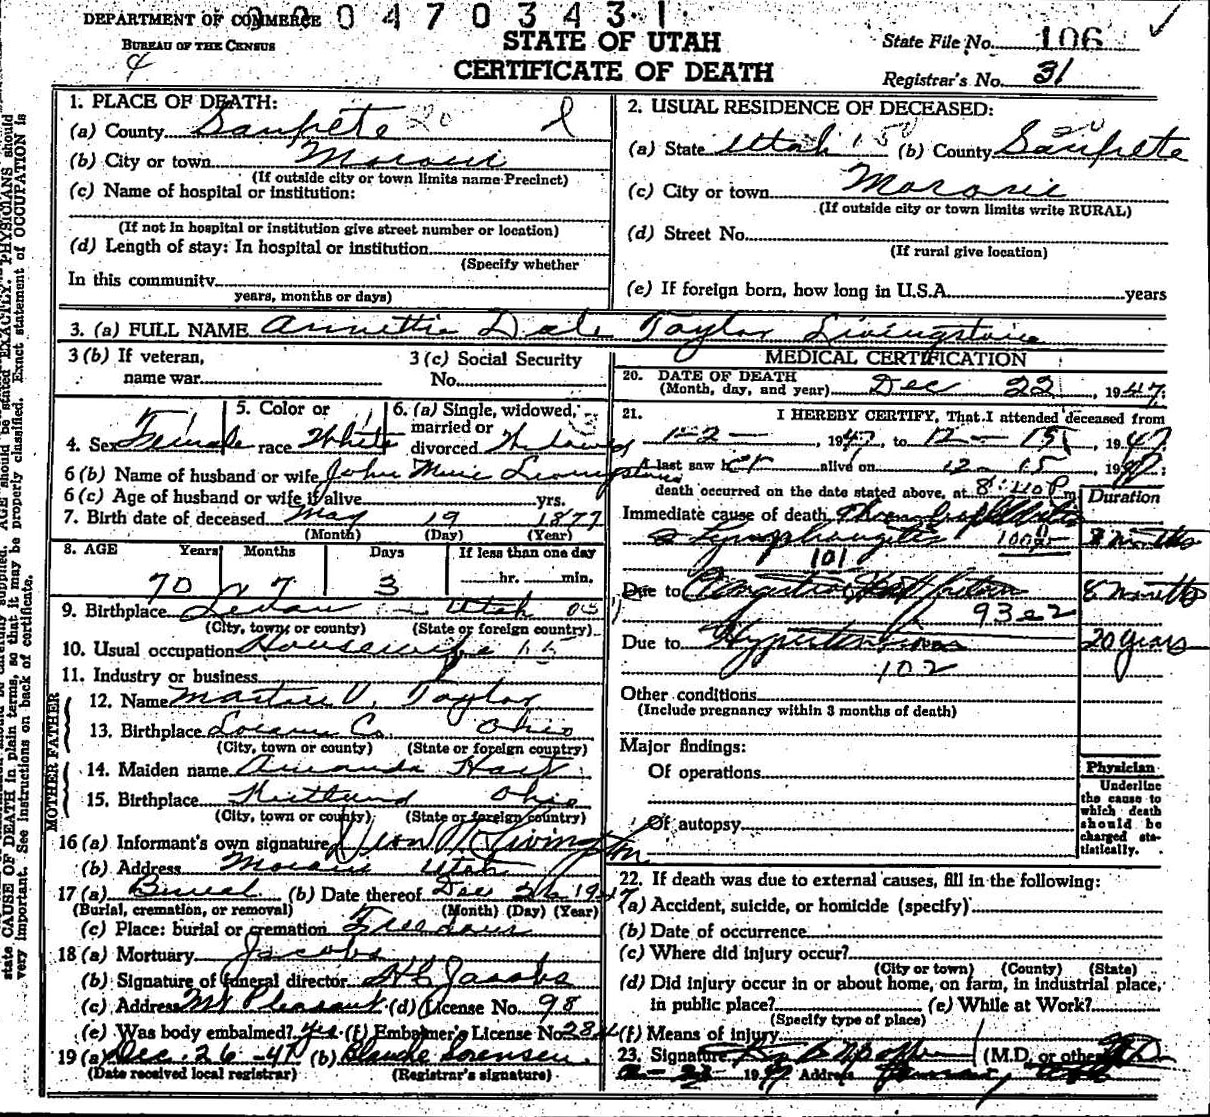 0004703431
DEPARTMENT OF COMMERCE
BUREAU OF THE CENSUS
4
STATE OF UTAH
CERTIFICATE OF DEATH
State File No. 106
Registrar's No. 31
1. PLACE OF DEATH:
(a) County Sanpete 20
(b) City or town Moroni
(If outside city or town limits name Precinct)
(c) Name of hospital or institution:
(If not in hospital or institution give street number or location)
(d) Length of stay: In hospital or institution
(Specify whether
In this community
years, months or days)
2. USUAL RESIDENCE OF DECEASED:
(a) State Utah (b) County Sanpete
(c) City or town Moroni
(If outside city or town limits write RURAL)
(d) Street No.
(If rural give location)
(e) If foreign born, how long in U.S.A. years
3. (a) FULL NAME Annettie Dale Taylor Livingstone
3 (b) If veteran,
name war
3 (c) Social Security
No.
4. Sex Female
5. Color or
race White
6. (a) Single, widowed,
married or
divorced Widowed
6 (b) Name of husband or wife John Muir Livingstone
6 (c) Age of husband or wife if alive yrs.
7. Birth date of deceased May 19 1877
(Month) (Day) (Year)
8. AGE Years Months Days If less than one day
70 7 3 hr. min.
9. Birthplace Utah
(City, town, or county) (State or foreign country)
10. Usual occupation Housewife
11. Industry or business
FATHER
12. Name Taylor
13. Birthplace Lorain Co. Ohio
(City, town or county) (State or foreign country)
MOTHER
14. Maiden name Amanda
15. Birthplace Kirtland Ohio
(City, town or county) (State or foreign country)
16 (a) Informant's own signature
(b) Address Moroni Utah
17 (a) Burial (b) Date thereof Dec 26 1947
(Burial, cremation, or removal) (Month) (Day) (Year)
(c) Place: burial or cremation Freedom
18 (a) Mortuary Jacobs
(b) Signature of funeral director Jacobs
(c) Address Mt Pleasant (d) License No. 98
(e) Was body embalmed? yes (f) Embalmer's License No.
19 (a) Dec. 26-47 (b) Blanche Sorensen
(Date received local registrar) (Registrar's signature)
MEDICAL CERTIFICATION
20. DATE OF DEATH
(Month, day, and year) Dec 22, 1947
21. I HEREBY CERTIFY, That I attended deceased from
1-2-, 1947, to 12-15, 1947
I last saw her alive on 12-15 1947;
death occurred on the date stated above, at 8:40 P m
Duration
Immediate cause of death Thrombophlebitis
& Lymphangitis 8 months
101
Due to 8 months
93e2
Due to Hypertension 20 years
102
Other conditions
(Include pregnancy within 3 months of death)
Major findings:
Of operations
Of autopsy
Physician
Underline
the cause to
which death
should be
charged sta-
tistically.
22. If death was due to external causes, fill in the following:
(a) Accident, suicide, or homicide (specify)
(b) Date of occurrence
(c) Where did injury occur?
(City or town) (County) (State)
(d) Did injury occur in or about home, on farm, in industrial place,
in public place? (e) While at Work?
(Specify type of place)
(f) Means of injury
23. Signature (M.D. or other)
1947 Address
state CAUSE OF DEATH in plain terms, so that it may be properly classified. Exact statement of OCCUPATION is
very important. See instructions on back of certificate.